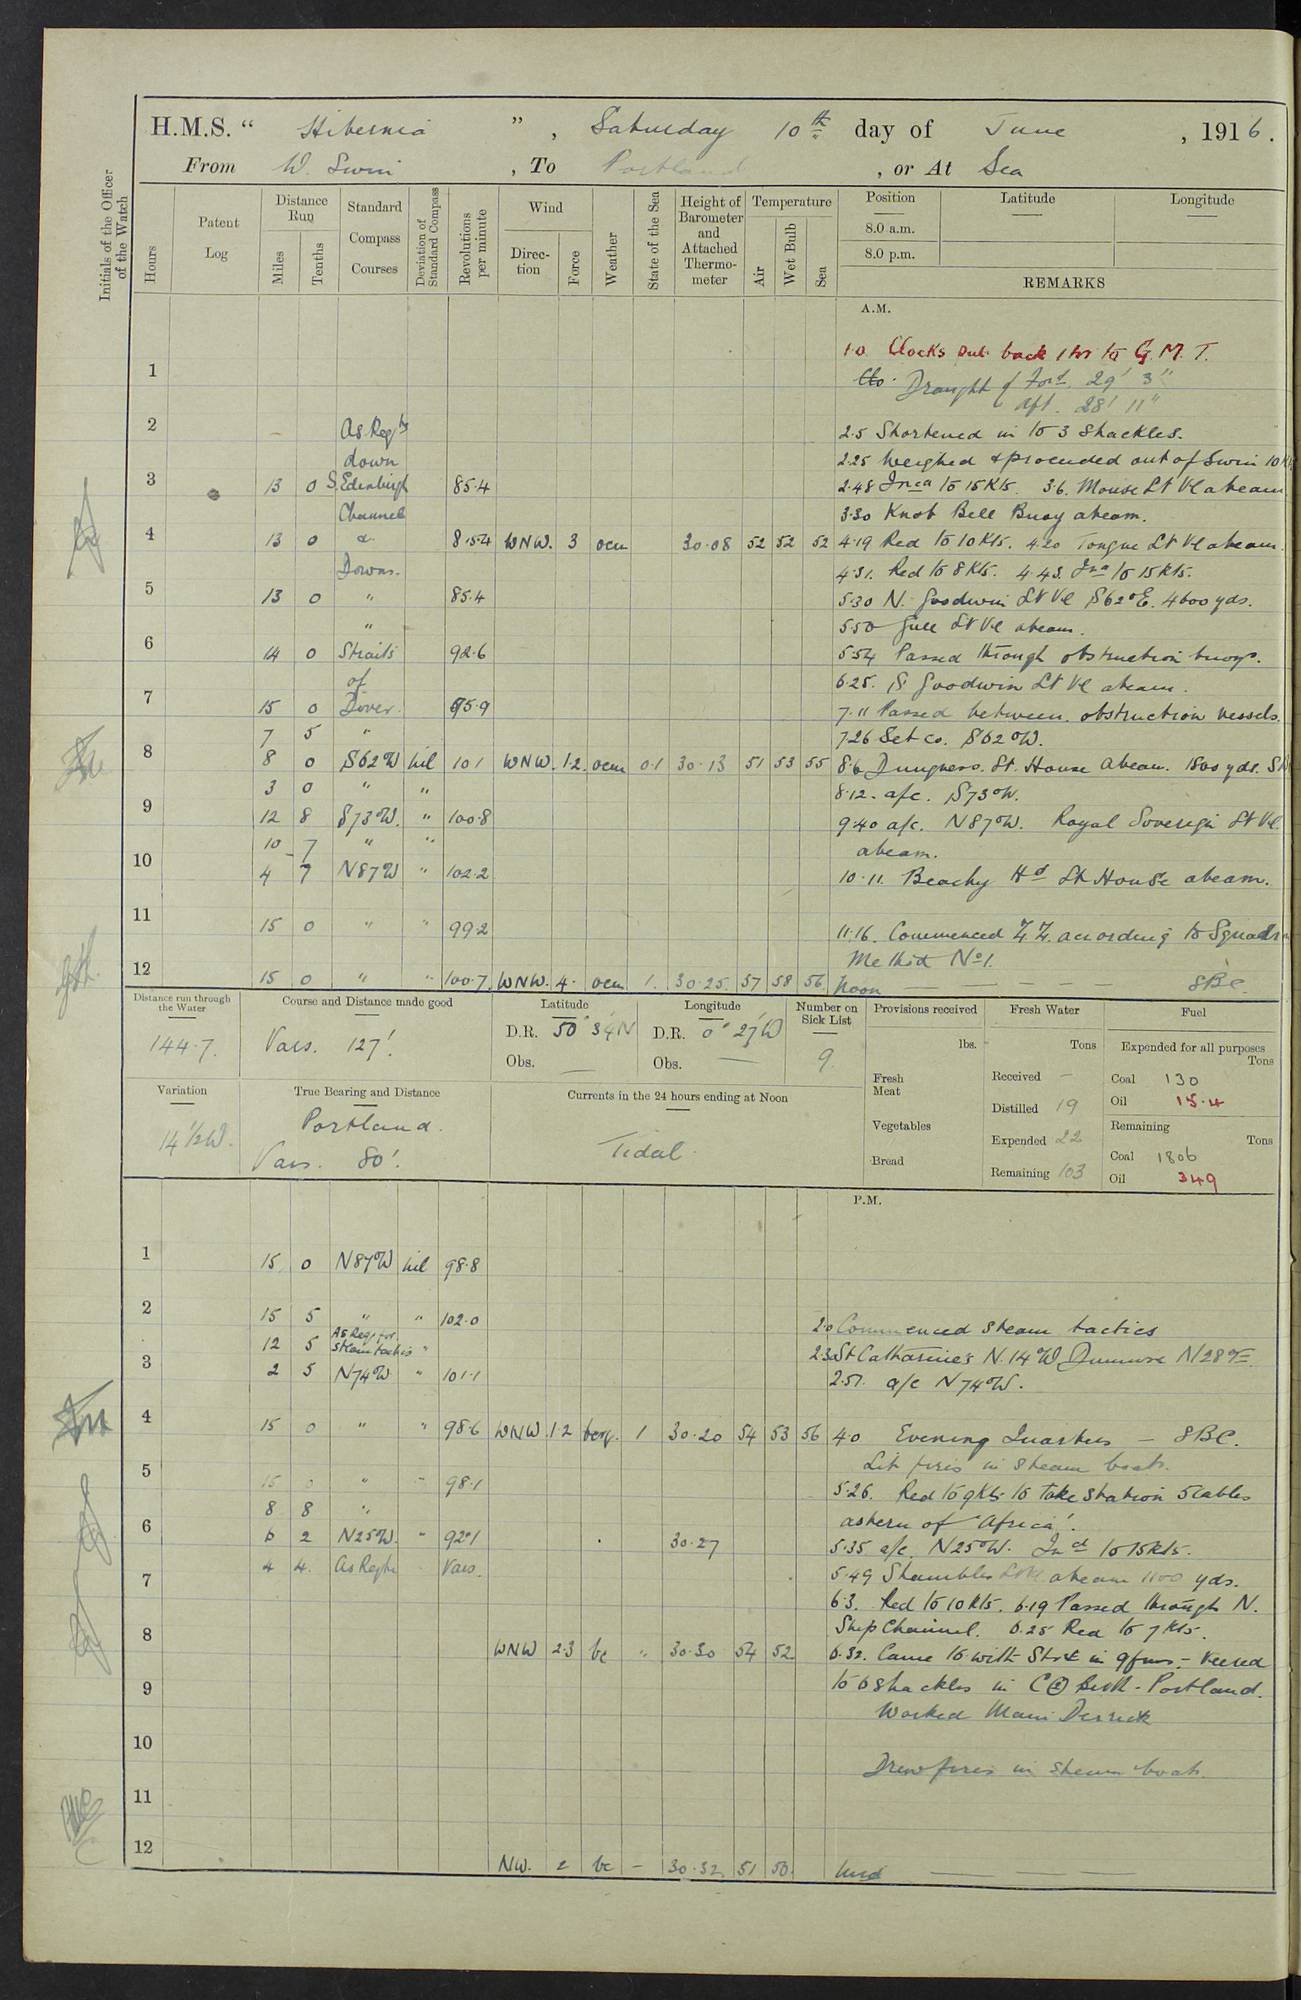 H.M.S. “ Hibernia ” , Saturday 10th day of June , 1916.
From W. Swin , To Portland , or At Sea
Initials of the Officer of the Watch
Hours
Patent Log
Distance Run
Miles
Tenths
Standard Compass Courses
Deviation of Standard Compass
Revolutions per minute
Wind
Direc-tion
Force
Weather
State of the Sea
Height of Barometer and Attached Thermo-meter
Temperature
Air
Wet Bulb
Sea
Position
8.0 a.m.
8.0 p.m.
Latitude
Longitude
REMARKS
A.M.
1.0 Clocks put back 1 hr to G.M.T.
1
Draught of Ford. 29' 3"
aft. 28' 11"
2 As Reqte 2.5 Shortened in to 3 Shackles.
down 2.25 Weighed & proceeded out of Swin 10 Kts
3 13 0 S. Edinburgh 85.4 2.48 Incd to 15 Kts. 3.6. Mouse Lt Vl abeam
Channel 3.30 Knob Bell Buoy abeam.
4 13 0 & 85.4 WNW. 3 ocm 30.08 52 52 52 4.19 Red to 10 Kts. 4.20 Tongue Lt Vl abeam.
Downs. 4.31. Red to 8 Kts. 4.43. Incd to 15 Kts.
5 13 0 " 85.4 5.30 N. Goodwin Lt Vl S62°E. 4600 yds.
" 5.50 Gull Lt Vl abeam.
6 14 0 Straits 92.6 5.54 Passed through obstruction buoys.
of 6.25. S Goodwin Lt Vl abeam.
7 15 0 Dover. 95.9 7.11 Passed between obstruction vessels.
7 5 " 7.26 Set co. S62°W.
8 8 0 S62°W nil 101 WNW. 1.2. ocm 0.1 30.13 51 53 55 8.6 Dungness. Lt. House abeam. 1500 yds.
3 0 " " 8.12. a/c. S73°W.
9 12 8 S73°W. " 100.8 9.40 a/c. N87°W. Royal Sovereign Lt Vl.
10 7 " " abeam.
10 4 7 N87°W " 102.2 10.11. Beachy Hd Lt House abeam.
11 15 0 " " 99.2 11.16. Commenced Z.Z. according to Squadron
Method No 1.
12 15 0 " " 100.7 WNW. 4. ocm 1. 30.25 57 58 56 Noon — — — SBC.
Distance run through the Water
144.7.
Course and Distance made good
Vars. 127'.
Latitude
D.R. 50° 34' N
Obs. —
Longitude
D.R. 0° 27' W
Obs. —
Number on Sick List
9.
Provisions received
lbs.
Fresh Meat
Vegetables
Bread
Fresh Water
Tons
Received —
Distilled 19
Expended 22
Remaining 103
Fuel
Expended for all purposes
Tons
Coal 130
Oil 15.4
Remaining
Tons
Coal 1806
Oil 349
Variation
14½W.
True Bearing and Distance
Portland.
Vars. 80'.
Currents in the 24 hours ending at Noon
Tidal
P.M.
1 15 0 N87°W nil 98.8
2 15 5 " " 102.0 2.0 Commenced steam tactics
12 5 As Req. for steam tactics " St Catharine's N.14°W Dunnose N28°E.
3 2 5 N74°W " 101.1 2.51. a/c N74°W.
4 15 0 " " 98.6 WNW 1.2 1 30.20 54 53 56 4.0 Evening Quarters — SBC.
Lit fires in steam boats.
5 15 0 " " 98.1 5.26. Red to 9 Kts to take station 5 cables
8 8 " astern of 'Africa'.
6 6 2 N25°W. " 92.1 30.27 5.35 a/c. N25°W. Incd to 15 Kts.
4 4 As Reqte Vars. 5.49 Shambles Lt Vl abeam 1100 yds.
7 6.3. Red to 10 Kts. 6.19 Passed through N.
Ship Channel. 6.25 Red to 7 Kts.
8 WNW 2.3 bc " 30.30 54 52 6.32. Came to with Stbd in 9 fms. — Veered
9 to 6 shackles in C Berth - Portland.
Worked Main Derrick
10
Drew fires in steam boats.
11
12 NW. 2 bc — 30.32 51 50. Mid — — —